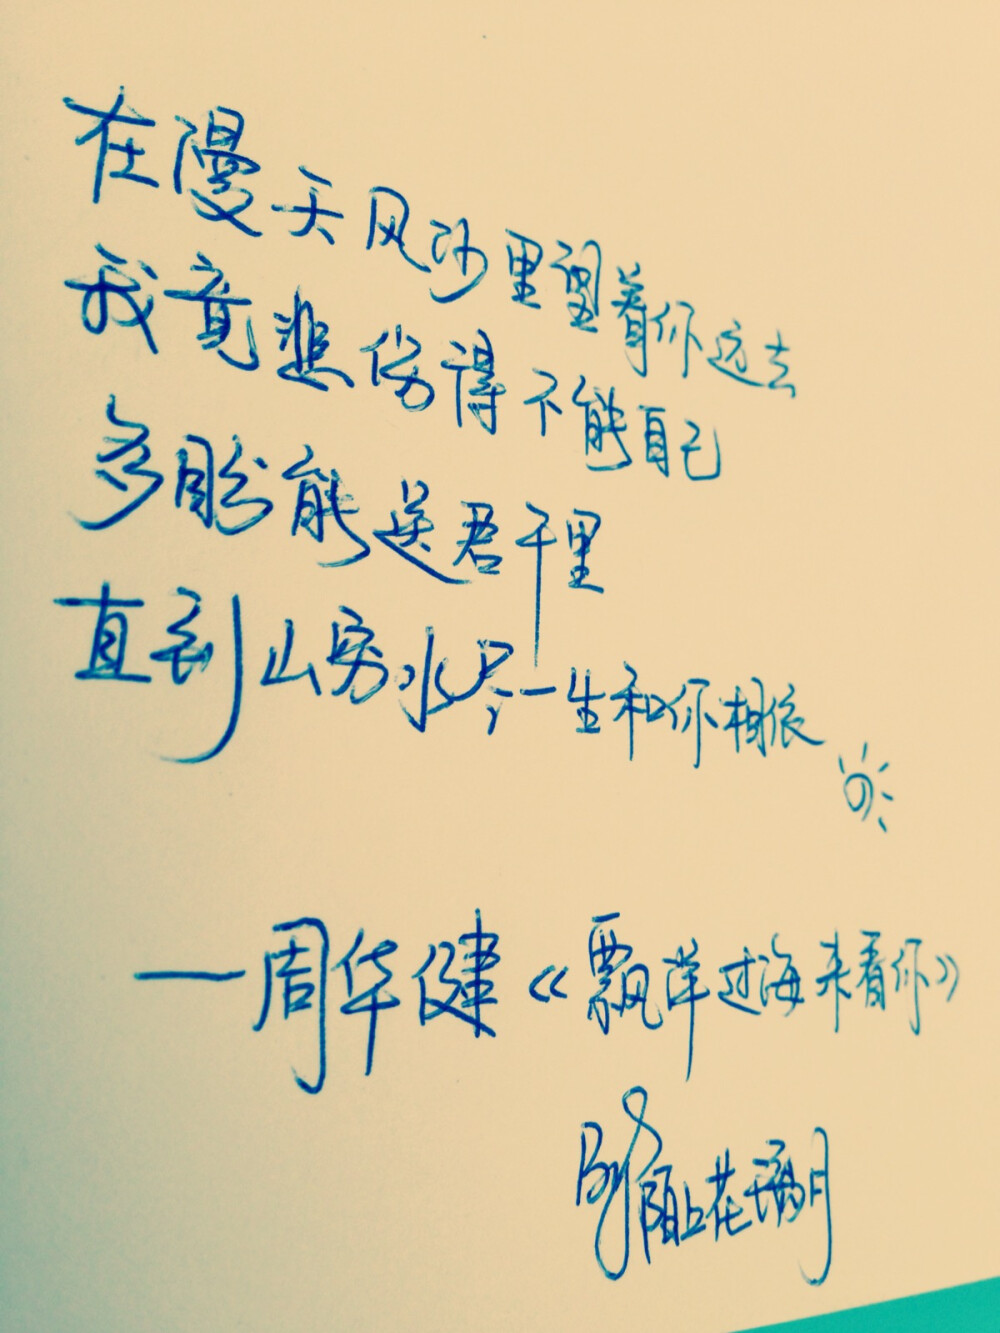 在漫天风沙里望着你远去
我竟悲伤得不能自己
多盼能送君千里
直到山穷水尽一生和你相依
—周华健《飘洋过海来看你》
By 陌上花 月